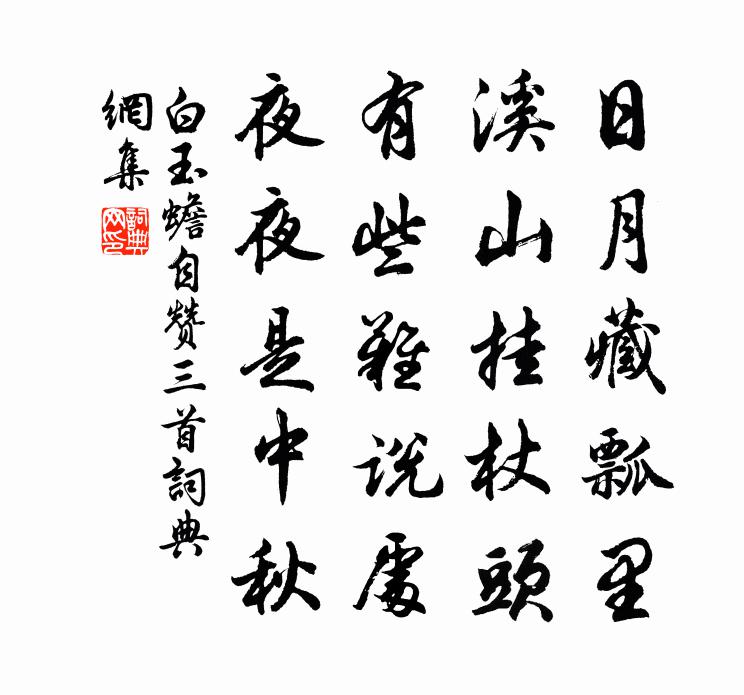 日月藏瓢里
溪山挂杖頭
有些難説處
夜夜是中秋
白玉蟾自赞三首詞典
網集
詞典
网印